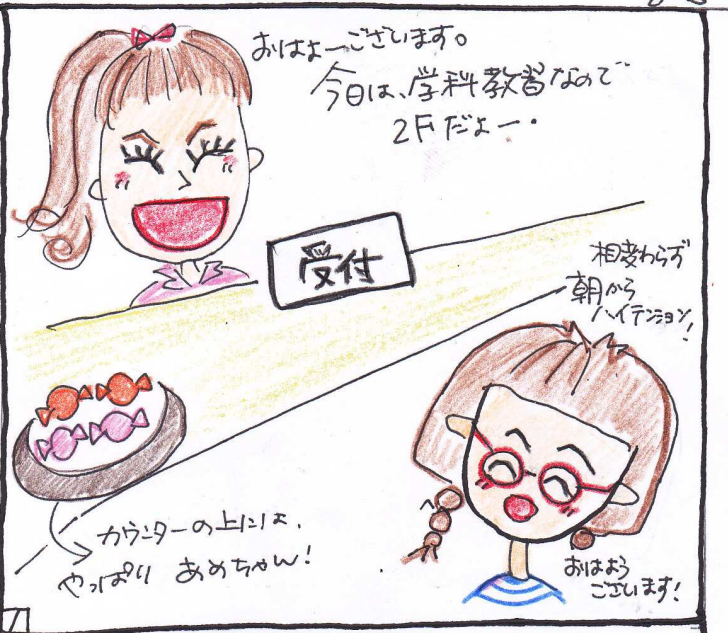 おはよーございます。
今日は、学科教習なので
2Fだよー・
受付
相変わらず
朝から
ハイテンション!
カウンターの上には、
やっぱり あめちゃん!
おはよう
ございます!
7